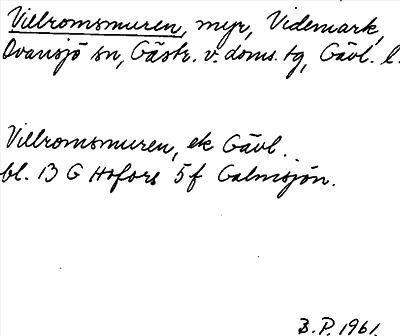 Villromsmuren, myr, Videmark,
Ovansjö sn, Gästr. v. doms. tg, Gävl. l.
Villromsmuren, ek Gävl.
bl. 13 G Hofors 5f Calmsjön.
B.P. 1961.